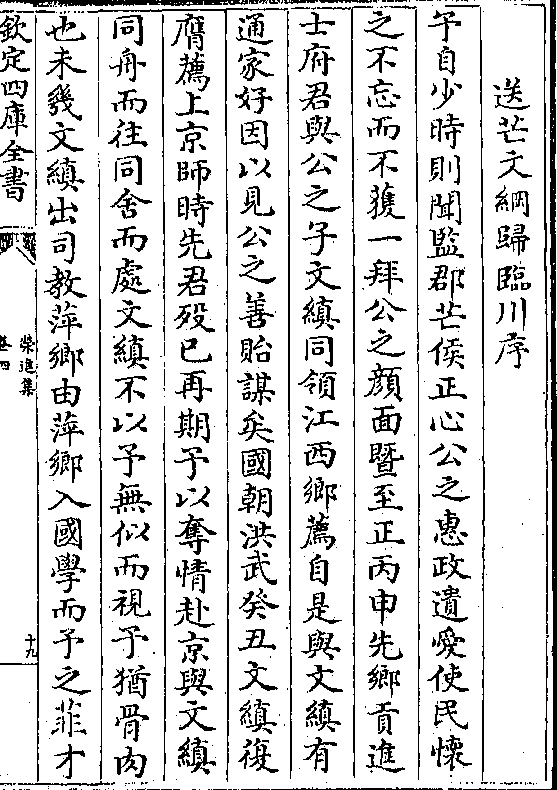 送芒文縝歸臨川序
予自少時則聞監郡芒侯正心公之惠政遺愛使民懷
之不忘而不獲一拜公之顔面暨至正丙申先鄉貢進
士府君與公之子文縝同領江西鄉薦自是與文縝有
通家好因以見公之善貽謀矣國朝洪武癸丑文縝復
膺薦上京師時先君殁已再期予以奪情赴京與文縝
同舟而往同舍而處文縝不以予無似而視予猶骨肉
也未幾文縝出司教萍鄉由萍鄉入國學而予之菲才
欽定四庫全書
卷四
十九